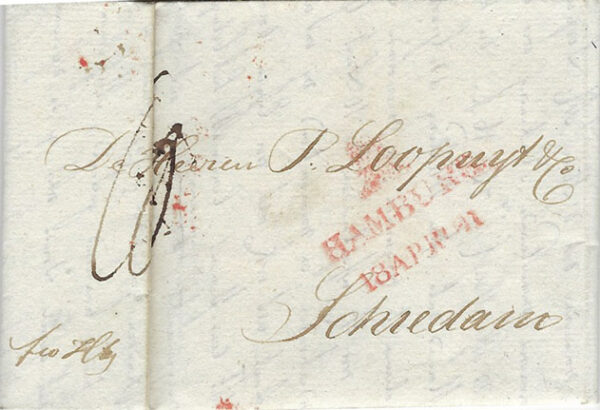 De Heeren P. Loopuyt & Co
HAMBURG
18 APR
Schiedam